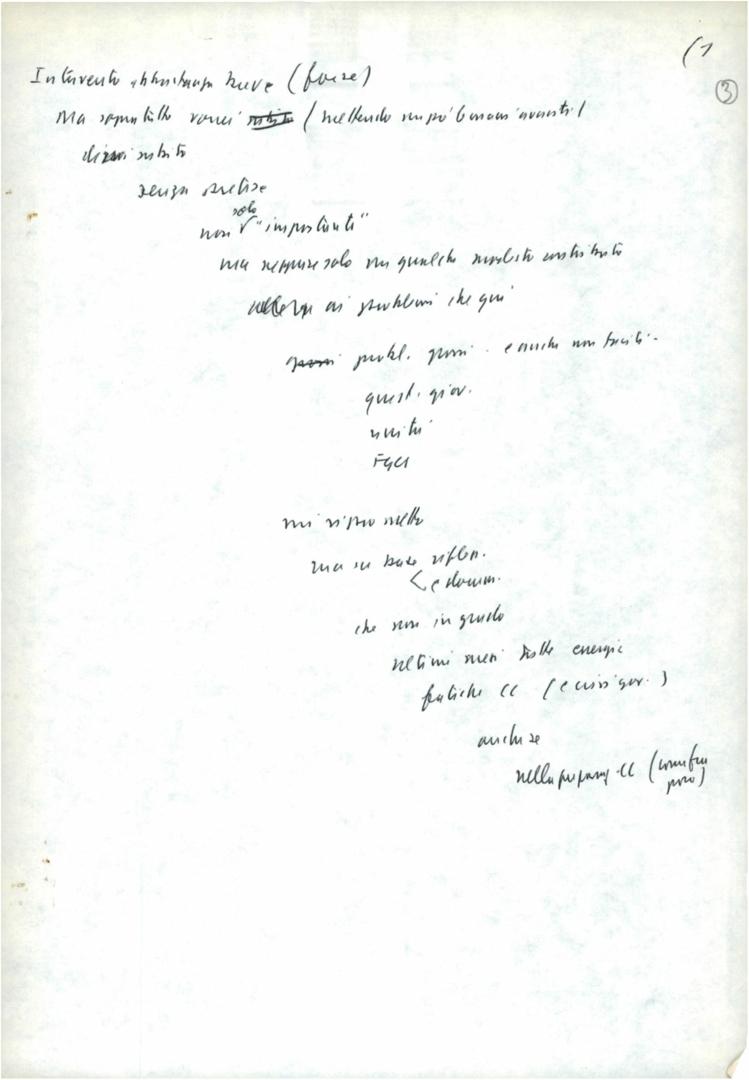 (1
3
Intervento abbastanza breve (forse)
Ma soprattutto vorrei subito (mettendo un po' le mani avanti)
dire subito
senza pretese
solo
non "importanti"
ma neppure solo un qualche modesto contributo
ai problemi che qui
grossi probl. grossi e anche non facili.
quest. giov.
unità
FGCI
mi riprometto
ma su base rifless.
e docum.
che non in grado
ultimi mesi tutte energie
fatiche CC (e crisi gov.)
anche se
nella prepараz. CC